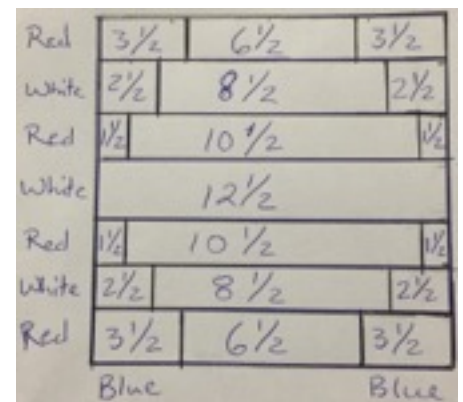 Red 3½ 6½ 3½
White 2½ 8½ 2½
Red 1½ 10½ 1½
White 12½
Red 1½ 10½ 1½
White 2½ 8½ 2½
Red 3½ 6½ 3½
Blue Blue